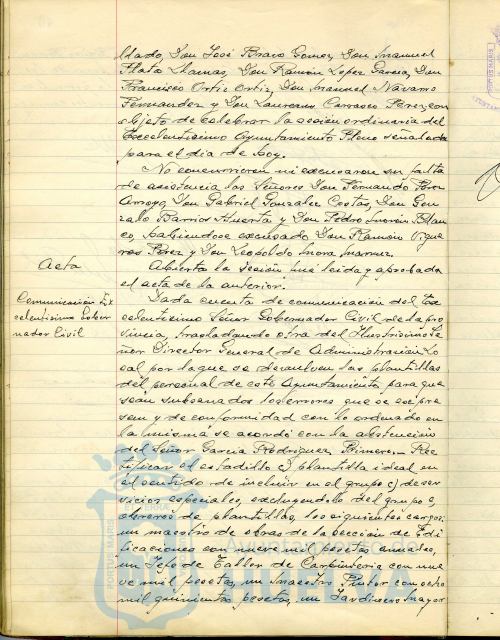 llado, Don José Bravo Gomez, Don Manuel
Plata Llamas, Don Ramón Lopez Garcia, Don
Francisco Ortiz Ortiz, Don Manuel Navarro
Fernandez y Don Laureano Carrasco Perez, con
objeto de celebrar la sesión ordinaria del
Excelentisimo Ayuntamiento Pleno señalada
para el dia de hoy.
No concurrieron ni excusaron su falta
de asistencia los Señores Don Fernando
Arroyo, Don Gabriel Gonzalez Costas, Don Gon
zalo Barrios Huerta y Don Pedro Morón Blan
co, habiendose excusado Don Ramón Vigue
ras Perez y Don Leopoldo
Acta
Abierta la sesión fue leida y aprobada
el acta de la anterior.
Comunicación Ex
celentisimo Gober
nador Civil
Dada cuenta de comunicación del Ex
celentisimo Señor Gobernador Civil de la pro
vincia, trasladando otra del Ilustrisimo Se
ñor Director General de Administración Lo
cal por la que se devuelven las plantillas
del personal de este Ayuntamiento para que
sean subsanados los errores que se expre
san y de conformidad con lo ordenado en
la misma se acordó con la abstención
del Señor Garcia Rodriguez: Primero.- Rec
tificar el estadillo c) plantilla ideal en
el sentido de incluir en el grupo c) de ser
vicios especiales, excluyendolo del grupo e,
obreros de plantillas, los siguientes cargos:
un maestro de obras de la sección de Edi
ficaciones con nueve mil pesetas anuales,
un Jefe de Taller de Carpinteria con nue
ve mil pesetas, un Maestro Pintor con ocho
mil quinientas pesetas, un Jardinero Mayor
PORTUS MARIS
Ayuntamiento